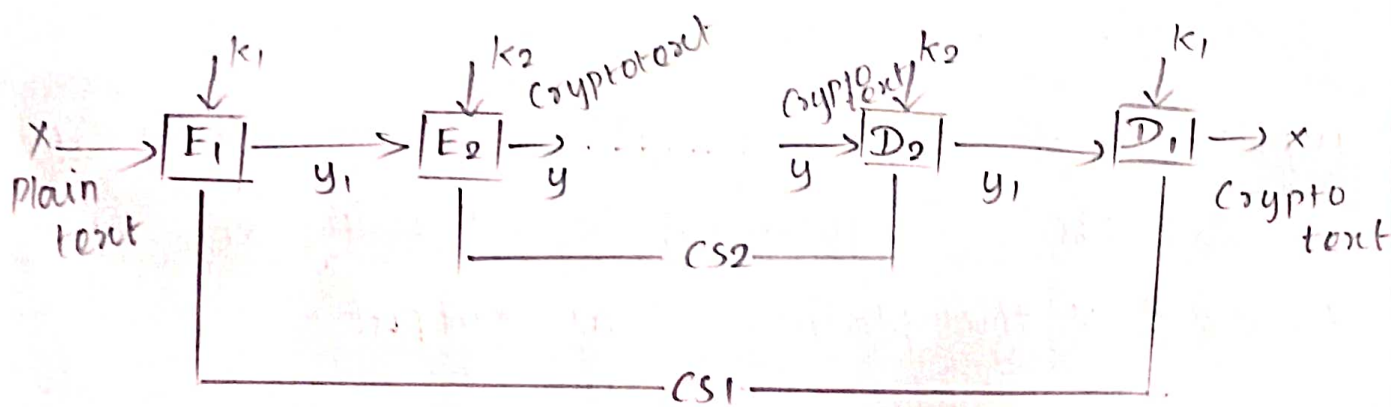 k1 k2 Cryptotext Cryptotext k2 k1
x E1 y1 E2 y y D2 y1 D1 x
Plain text Crypto text
CS2
CS1